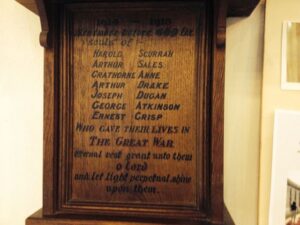 1914 – 1919
Remember before GOD the
souls of
HAROLD SCURRAH
ARTHUR SALES
CRATHORNE ANNE
ARTHUR DRAKE
JOSEPH DUGAN
GEORGE ATKINSON
ERNEST CRISP
WHO GAVE THEIR LIVES IN
THE GREAT WAR
eternal rest grant unto them
O Lord
and let light perpetual shine
upon them.